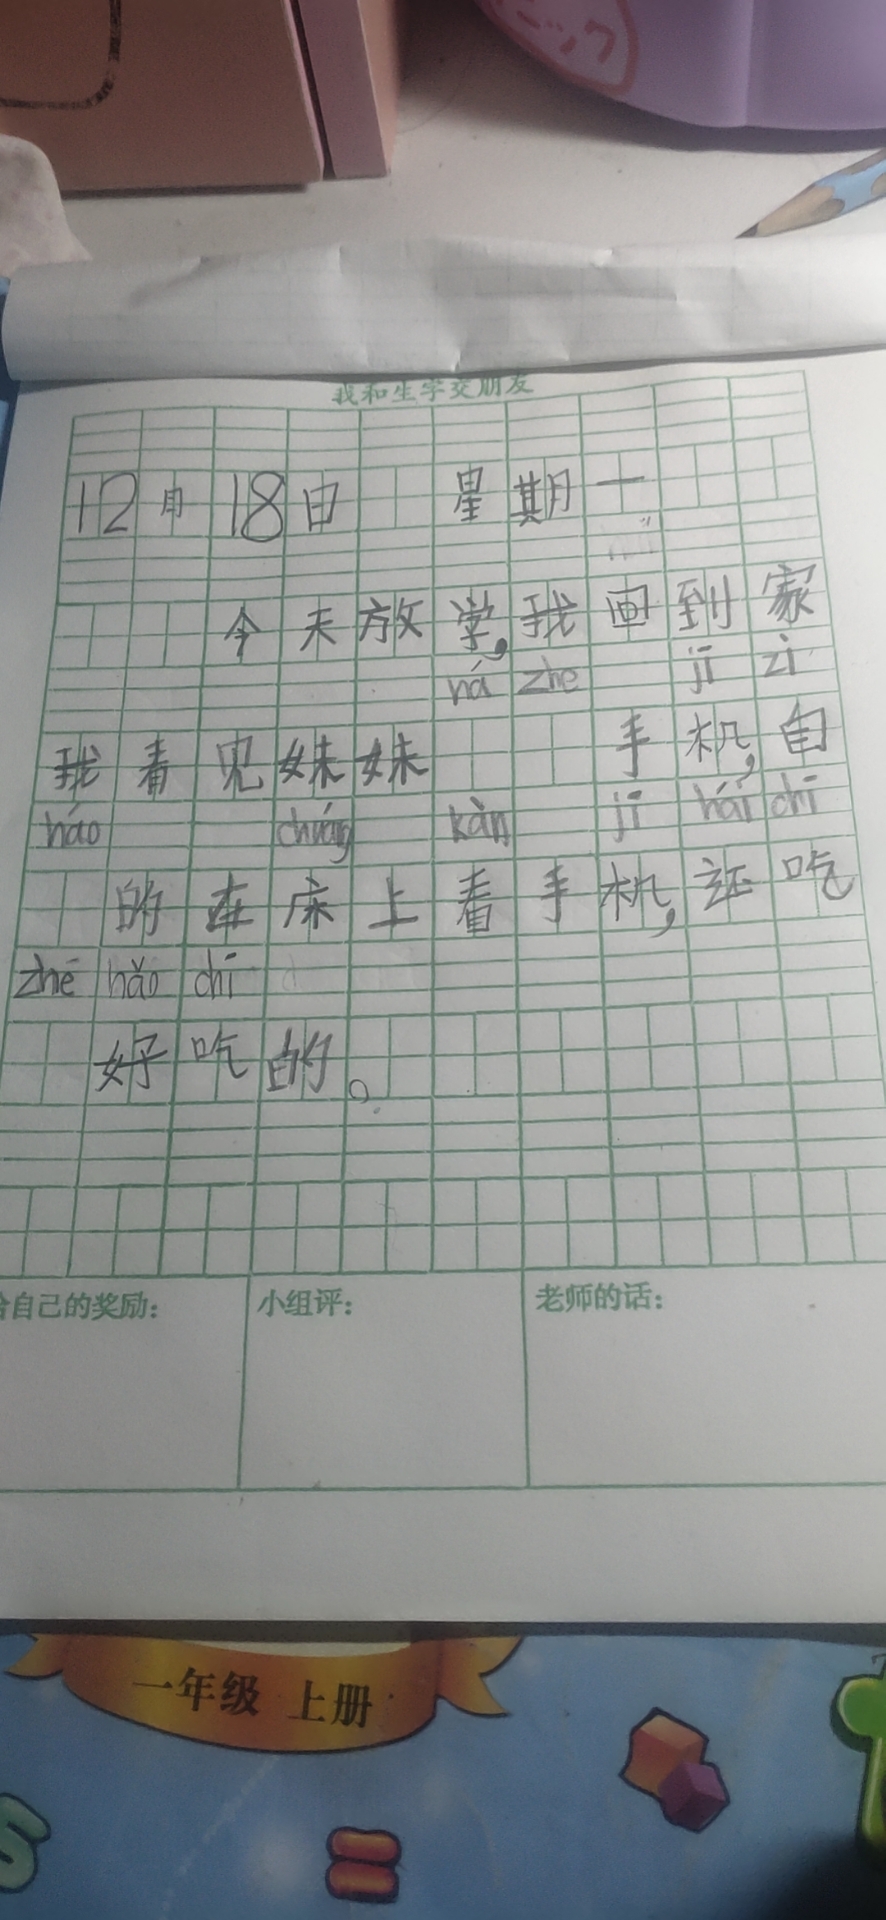 ニック
我和生字交朋友
12月18日 星期一
今天放学,我回到家
ná zhe jī zì
我看见妹妹 手机,自
háo chuáng kàn jī hái chī
的在床上看手机,还吃
zhē hǎo chī
好吃的。
给自己的奖励: 小组评: 老师的话:
一年级 上册